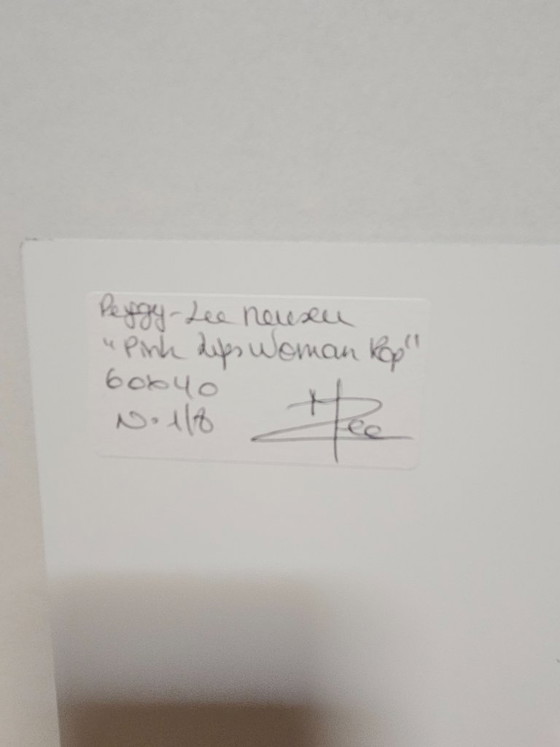 Peggy-Lee
"Pink Lips Woman Pop"
60x40
No. 1/8
Lee